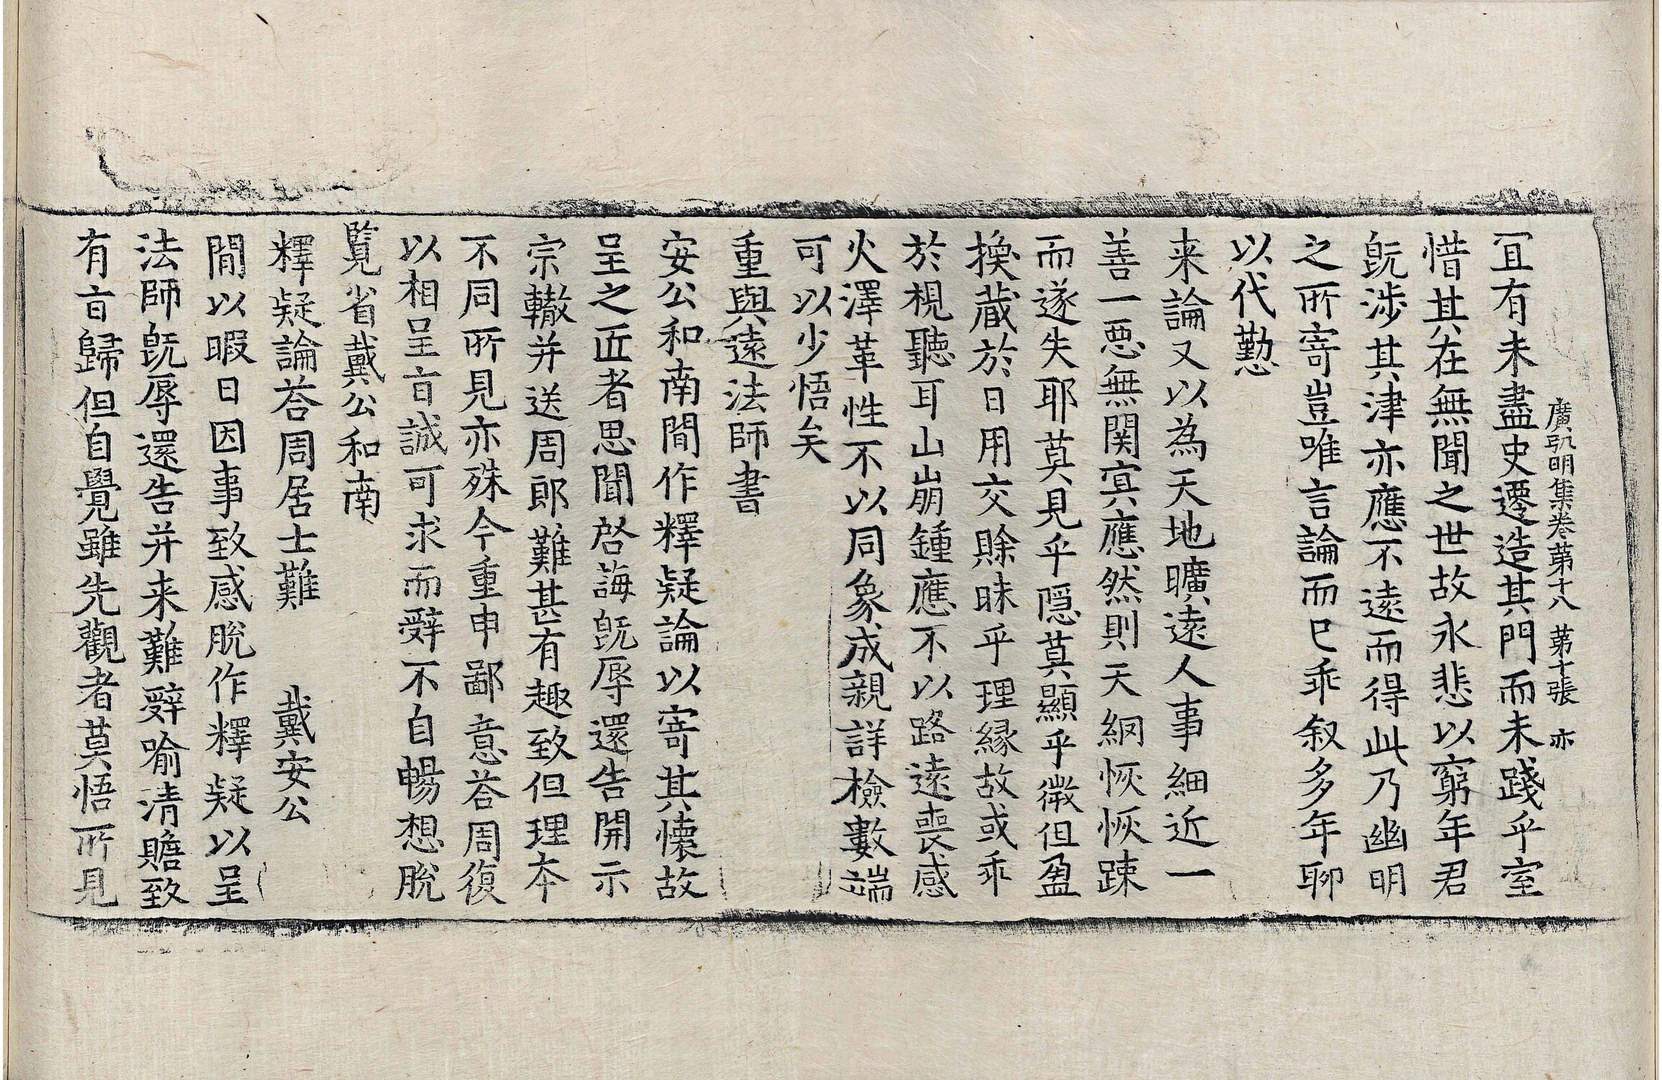 廣弘明集卷苐十八　苐十張　亦
冝有未盡史遷造其門而未踐乎室
惜其在無聞之世故永悲以窮年君
旣涉其津亦應不遠而得此乃幽明
之所寄豈唯言論而已乖叙多年聊
以代懃
来論又以為天地曠遠人事細近一
善一惡無関㝠應然則天網恢恢踈
而遂失耶莫見乎隱莫顯乎微但盈
換藏於日用交賒昧乎理緣故或乖
於視聽耳山崩鍾應不以路遠喪感
火澤革性不以同象成親詳檢數端
可以少悟矣
重與遠法師書
安公和南間作釋疑論以寄其懷故
呈之匠者思聞啓誨旣辱還告開示
宗轍并送周郎難甚有趣致但理本
不同所見亦殊今重申鄙意荅周復
以相呈盲誠可求而辭不自暢想脫
覽省戴公和南
釋疑論荅周居士難　戴安公
間以暇日因事致感脫作釋疑以呈
法師旣辱還告并来難辭喻清贍致
有旨歸但自覺雖先觀者莫悟所見